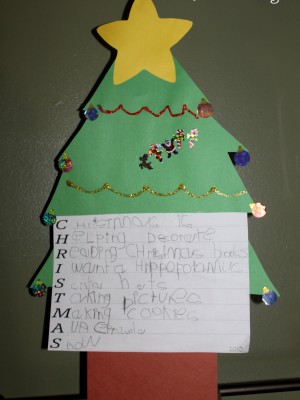 CHristmas is
HeLping Decorate
Reading Christmas books
I want a Hippopotamus
Santa hats
Taking pictures
Making cookies
A
SnoW
2010